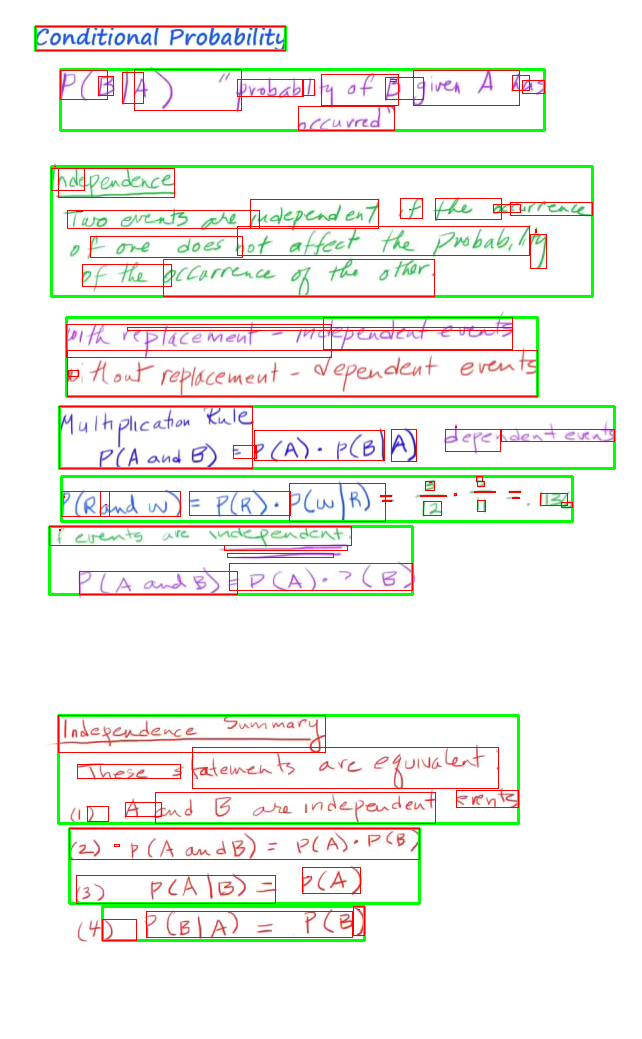 Conditional Probability
P(B|A) "probability of B given A has
occurred"
Independence
Two events are independent if the occurrence
of one does not affect the probability
of the occurrence of the other.
with replacement - independent events
without replacement - dependent events
Multiplication Rule
P(A and B) = P(A) · P(B|A) dependent events
P(R and W) = P(R) · P(W|R) =
If events are independent.
P(A and B) = P(A) · P(B)
Independence Summary
These statements are equivalent.
(1) A and B are independent events
(2) P(A and B) = P(A) · P(B)
(3) P(A|B) = P(A)
(4) P(B|A) = P(B)